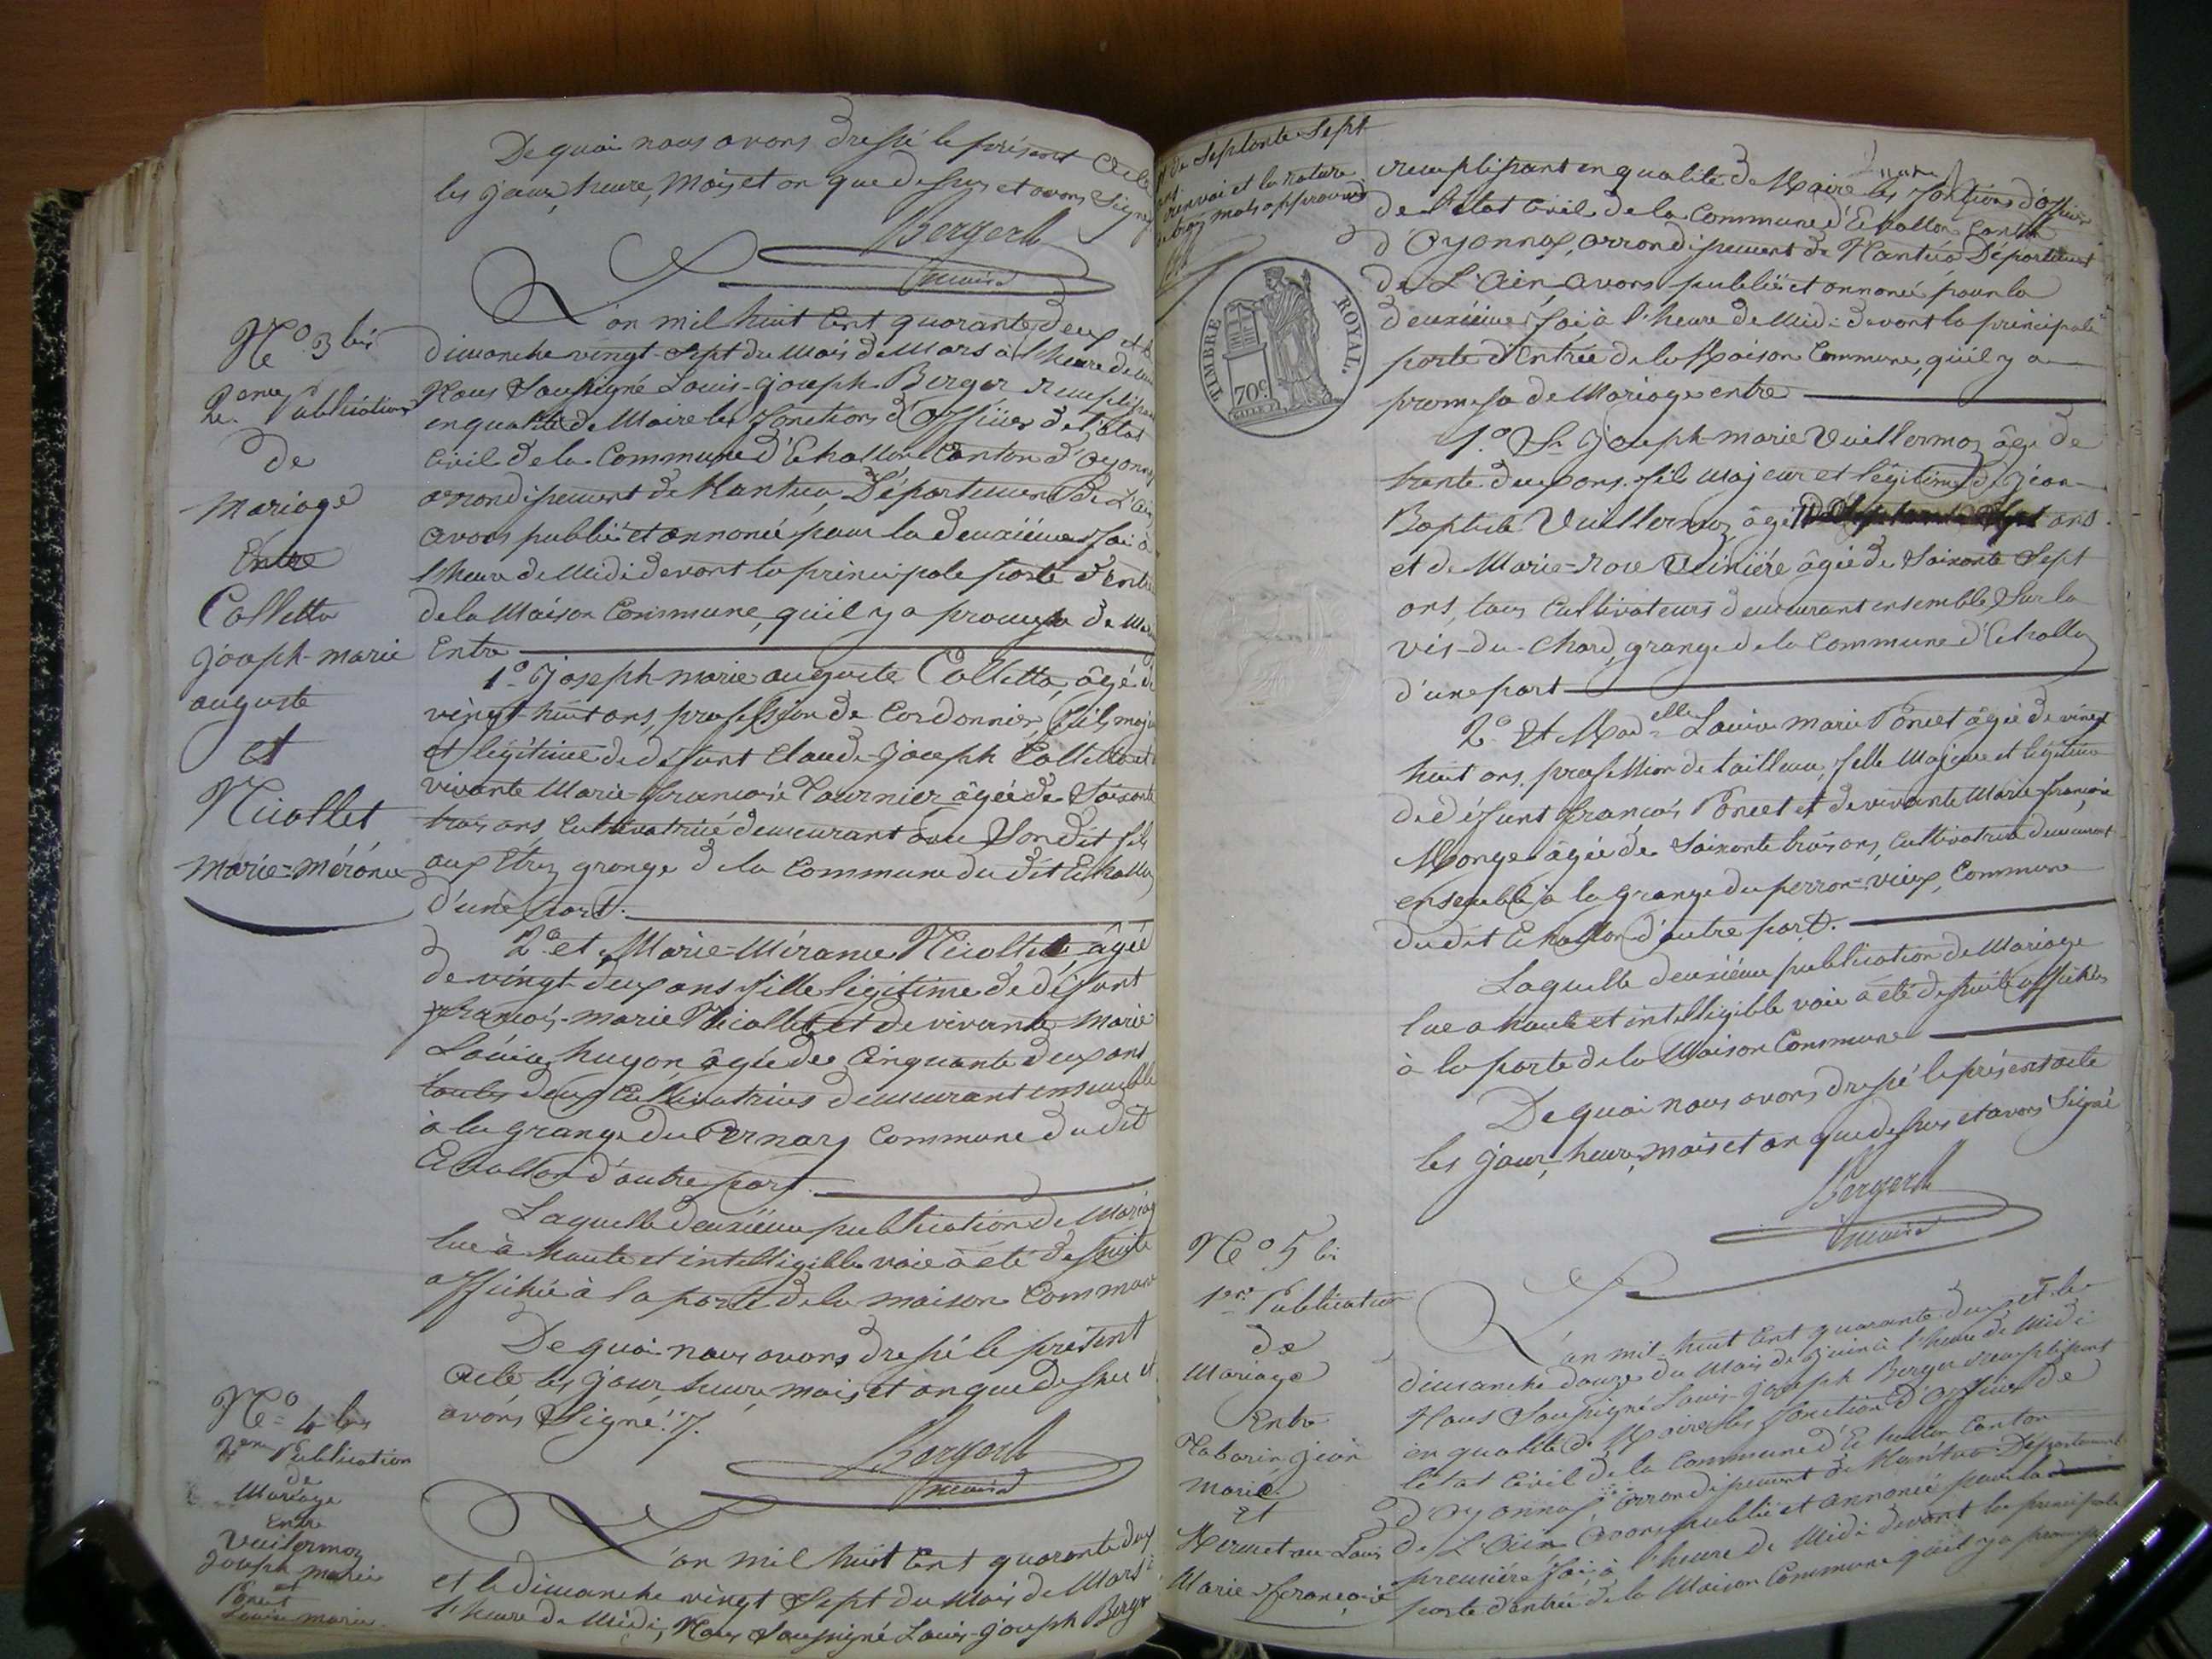 De quoi nous avons dressé le présent Acte
les jour, heure, Mois et an que dessus et avons Signé
Berger L
maire
N.º 3 bis
2.eme Publication
de
Mariage
Entre
Colletta
joseph-marie
auguste
et
Nicollet
marie-mérance
L'an mil huit Cent quarante deux et le
dimanche vingt-Sept du Mois de Mars à l'heure de
Nous Soussigné Louis-joseph Berger remplissant
en qualité de Maire les fonctions d'Officier de l'état
Civil de la Commune d'Echallon Canton d'Oyonnax
arrondissement de Nantua, Département de L'ain
avons publié et annoncé pour la deuxième foi à
l'heure de Midi devant la principale porte d'entrée
de la Maison Commune, qu'il y a promesse de
Entre
1.º Joseph-marie auguste Colletta, âgé de
vingt-huit ans, profession de Cordonnier, fils majeur
et légitime de défunt Claude-joseph Colletta et
vivante Marie-françoise Tournier âgée de Soixante
trois ans Cultivatrice demeurant avec Son dit fils
aux Etrez grange de la Commune du dit Echallon
d'une part.
2.º et Marie-Mérance Nicollet, âgée
de vingt-deux ans fille légitime de défunt
françois-marie Nicollet et de vivante Marie
Louise hugon âgée de Cinquante deux ans
toutes deux Cultivatrices demeurant ensemble
à la grange du Pernay Commune du dit
Echallon d'autre part.
Laquelle deuxième publication de Mariage
lue à haute et intelligible voie a été de suite
affichée à la porte de la maison Commune
De quoi nous avons dressé le présent
acte, les jour, heure, mois, et an que dessus et
avons Signé
Berger L
maire
N.º 4 bis
2.eme Publication
de
Mariage
Entre
Vuillermoz
Joseph marie
et
Poncet
Louise marie
L'an mil huit Cent quarante deux
et le dimanche vingt Sept du Mois de Mars à
l'heure de Midi, Nous Soussigné Louis-joseph Berger
de Septante Sept
renvoi et la rature
de trois mots approuvés
TIMBRE ROYAL.
70c.
remplissant en qualité de Maire les fonctions d'Officier
de l'état Civil de la Commune d'Echallon Canton
d'Oyonnax, arrondissement de Nantua Département
de L'Ain avons publié et annoncé pour la
deuxième foi à l'heure de Midi devant la principale
porte d'Entrée de la Maison Commune, qu'il y a
promesse de Mariage entre
1.º Sr Joseph-marie Vuillermoz âgé de
trente deux ans, fils Majeur et légitime de Jean-
Baptiste Vuillermoz, âgé ans
et de Marie-rose âgée de Soixante Sept
ans, tous Cultivateurs demeurant ensemble Sur la
vis-du-Chard, grange de la Commune d'Echallon
d'une part
2.º Et Mad.elle Louise marie Poncet âgée de vingt
huit ans, profession de tailleuse, fille Majeure et légitime
de défunt françois Poncet et de vivante Marie-françoise
Monge âgée de Soixante trois ans, Cultivatrice demeurant
ensemble à la grange du perron-vieux, Commune
du dit Echallon d'autre part.
Laquelle deuxième publication de Mariage
lue a haute et intelligible voie a été de suite affichée
à la porte de la Maison Commune
De quoi nous avons dressé le présent acte
les jour, heure, mois et an que dessus et avons Signé
Berger L
maire
N.º 5 bis
1.ere Publication
de
Mariage
Entre
Tabarin jean
Marie
Et
Mermet-au-Louis
Marie-françoise
L'an mil huit Cent quarante deux et le
dimanche douze du Mois de Juin à l'heure de Midi
Nous Soussigné Louis-joseph Berger remplissant
en qualité de Maire les fonction d'Officier de
l'état Civil de la Commune d'Echallon Canton
d'Oyonnax, arrondissement de Nantua Département
de L'Ain avons publié et annoncé pour la
première foi à l'heure de Midi devant la principale
porte d'entrée de la Maison Commune qu'il y a promesse